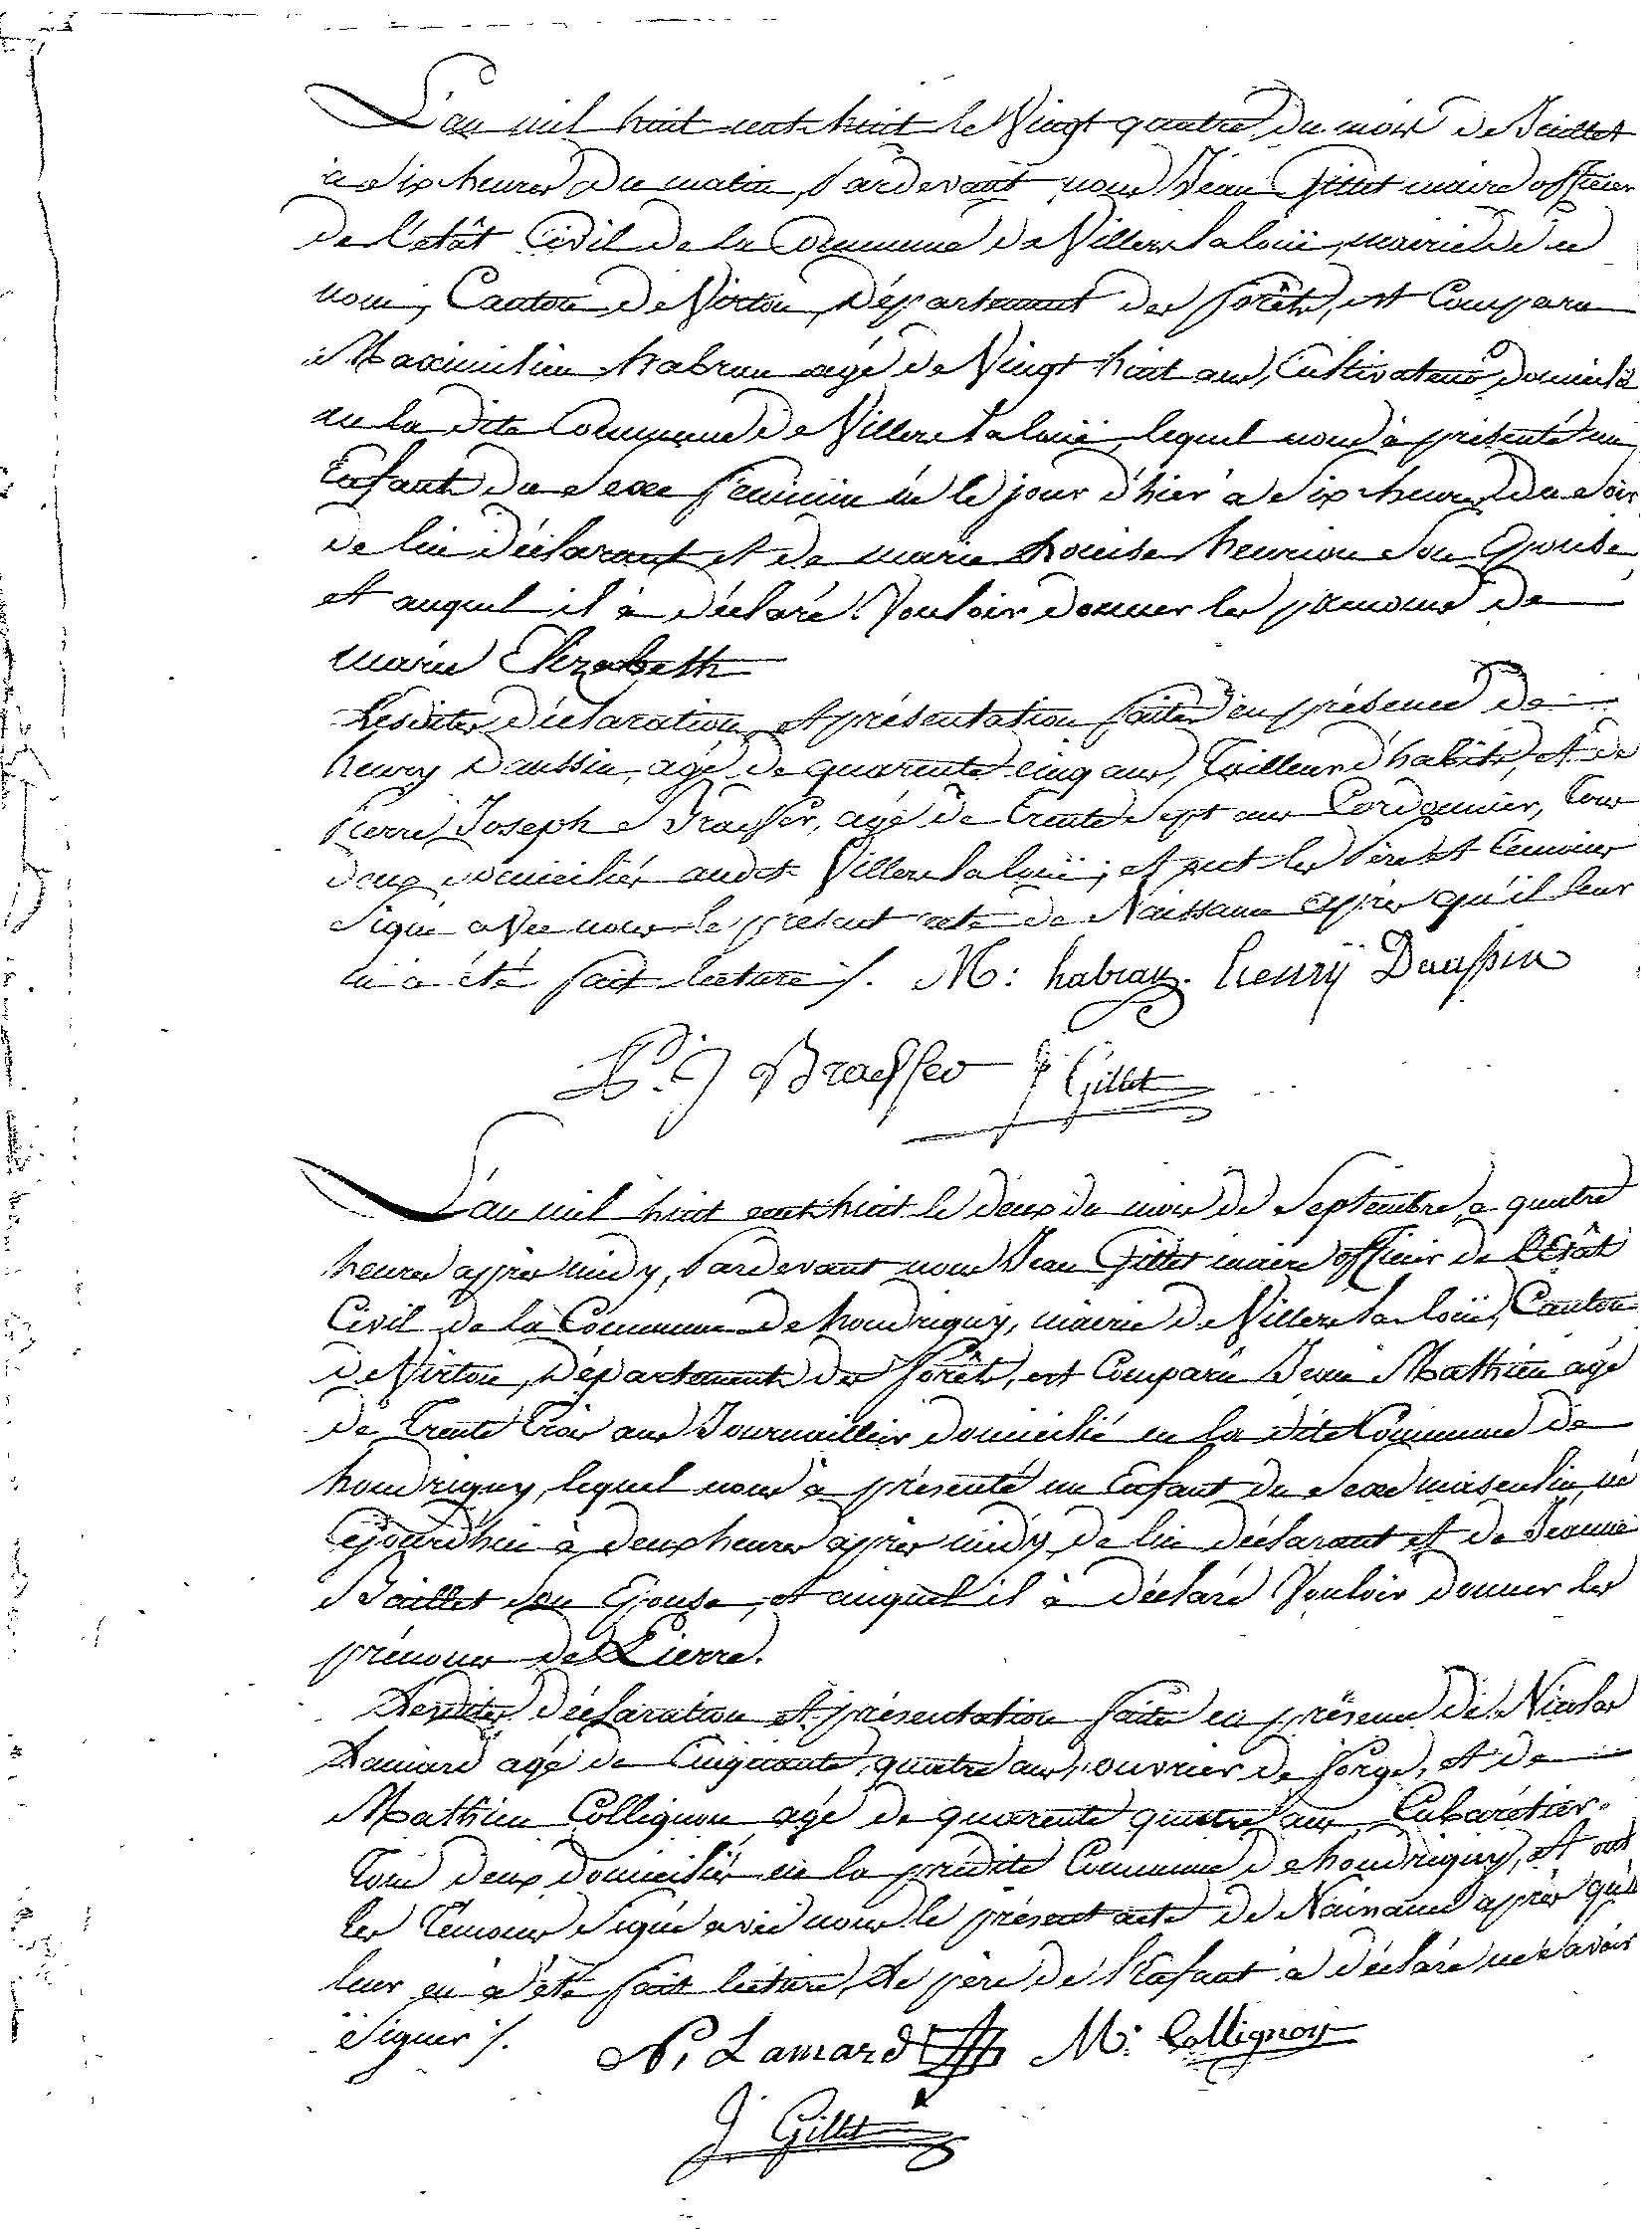 L'an mil huit cent huit le Vingt quatre du mois de Juillet
à dix heures du matin, Pardevant nous Jean Gillet maire officier
de l'etât Civil de la Commune de Villers la loüe, mairie de ce
nom, Canton de Virton, Département des forêts, est Comparu
Maximilien habran agé de Vingt huit ans, Cultivateur domicilié
en la dite Commune de Villers la loüe, lequel nous à présenté un
Enfant du Sexe feminin né le jour d'hier à Six heures du Soir
de lui déclarant et de marie Louise henrion Son Epouse
et auquel il à déclaré Vouloir donner les prenoms de
marie Elizabeth
Lesdites déclaration et présentation faites en présence de
henry Daussin, agé de quarente cinq ans, Tailleur d'habits, et de
Pierre Joseph Brasseur, agé de trente Sept ans Cordonnier, Tous
deux domiciliés audit Villers la loüe; et ont les Père et témoins
Signé avec nous le présent acte de Naissance après qu'il leur
en a été fait lecture ./. M: habran. henrÿ Daussin
P. J Brasseur J Gillet
L'an mil huit cent huit le deux du mois de Septembre, à quatre
heures après midy, Pardevant nous Jean Gillet maire officier de l'Etât
Civil de la Commune de houdrigny, mairie de Villers la loüe, Canton
de Virton, Département des forêts, est Comparu Jean Mathieu agé
de trente trois ans Journaillier domicilié en la dite Commune de
houdrigny, lequel nous à présenté un Enfant du Sexe masculin, né
Cejourd'hui à deux heures après midy, de lui déclarant et de Jeanne
Baillet Son Epouse, et auquel il à déclaré Vouloir donner les
prénoms de Pierre.
Lesdites déclaration et présentation faite en présence de Nicolas
Lamard agé de Cinquante quatre ans, ouvrier de forge, et de
Mathieu Collignon agé de quarente quatre ans Cabarétier.
Tous deux domiciliés en la prédite Commune de houdrigny, et ont
les témoins Signé avec nous le présent acte de Naissance après qu'il
leur en à été fait lecture, Le père de l'Enfant à déclaré ne savoir
Signer ./. N, Lamard M: Collignon
J Gillet